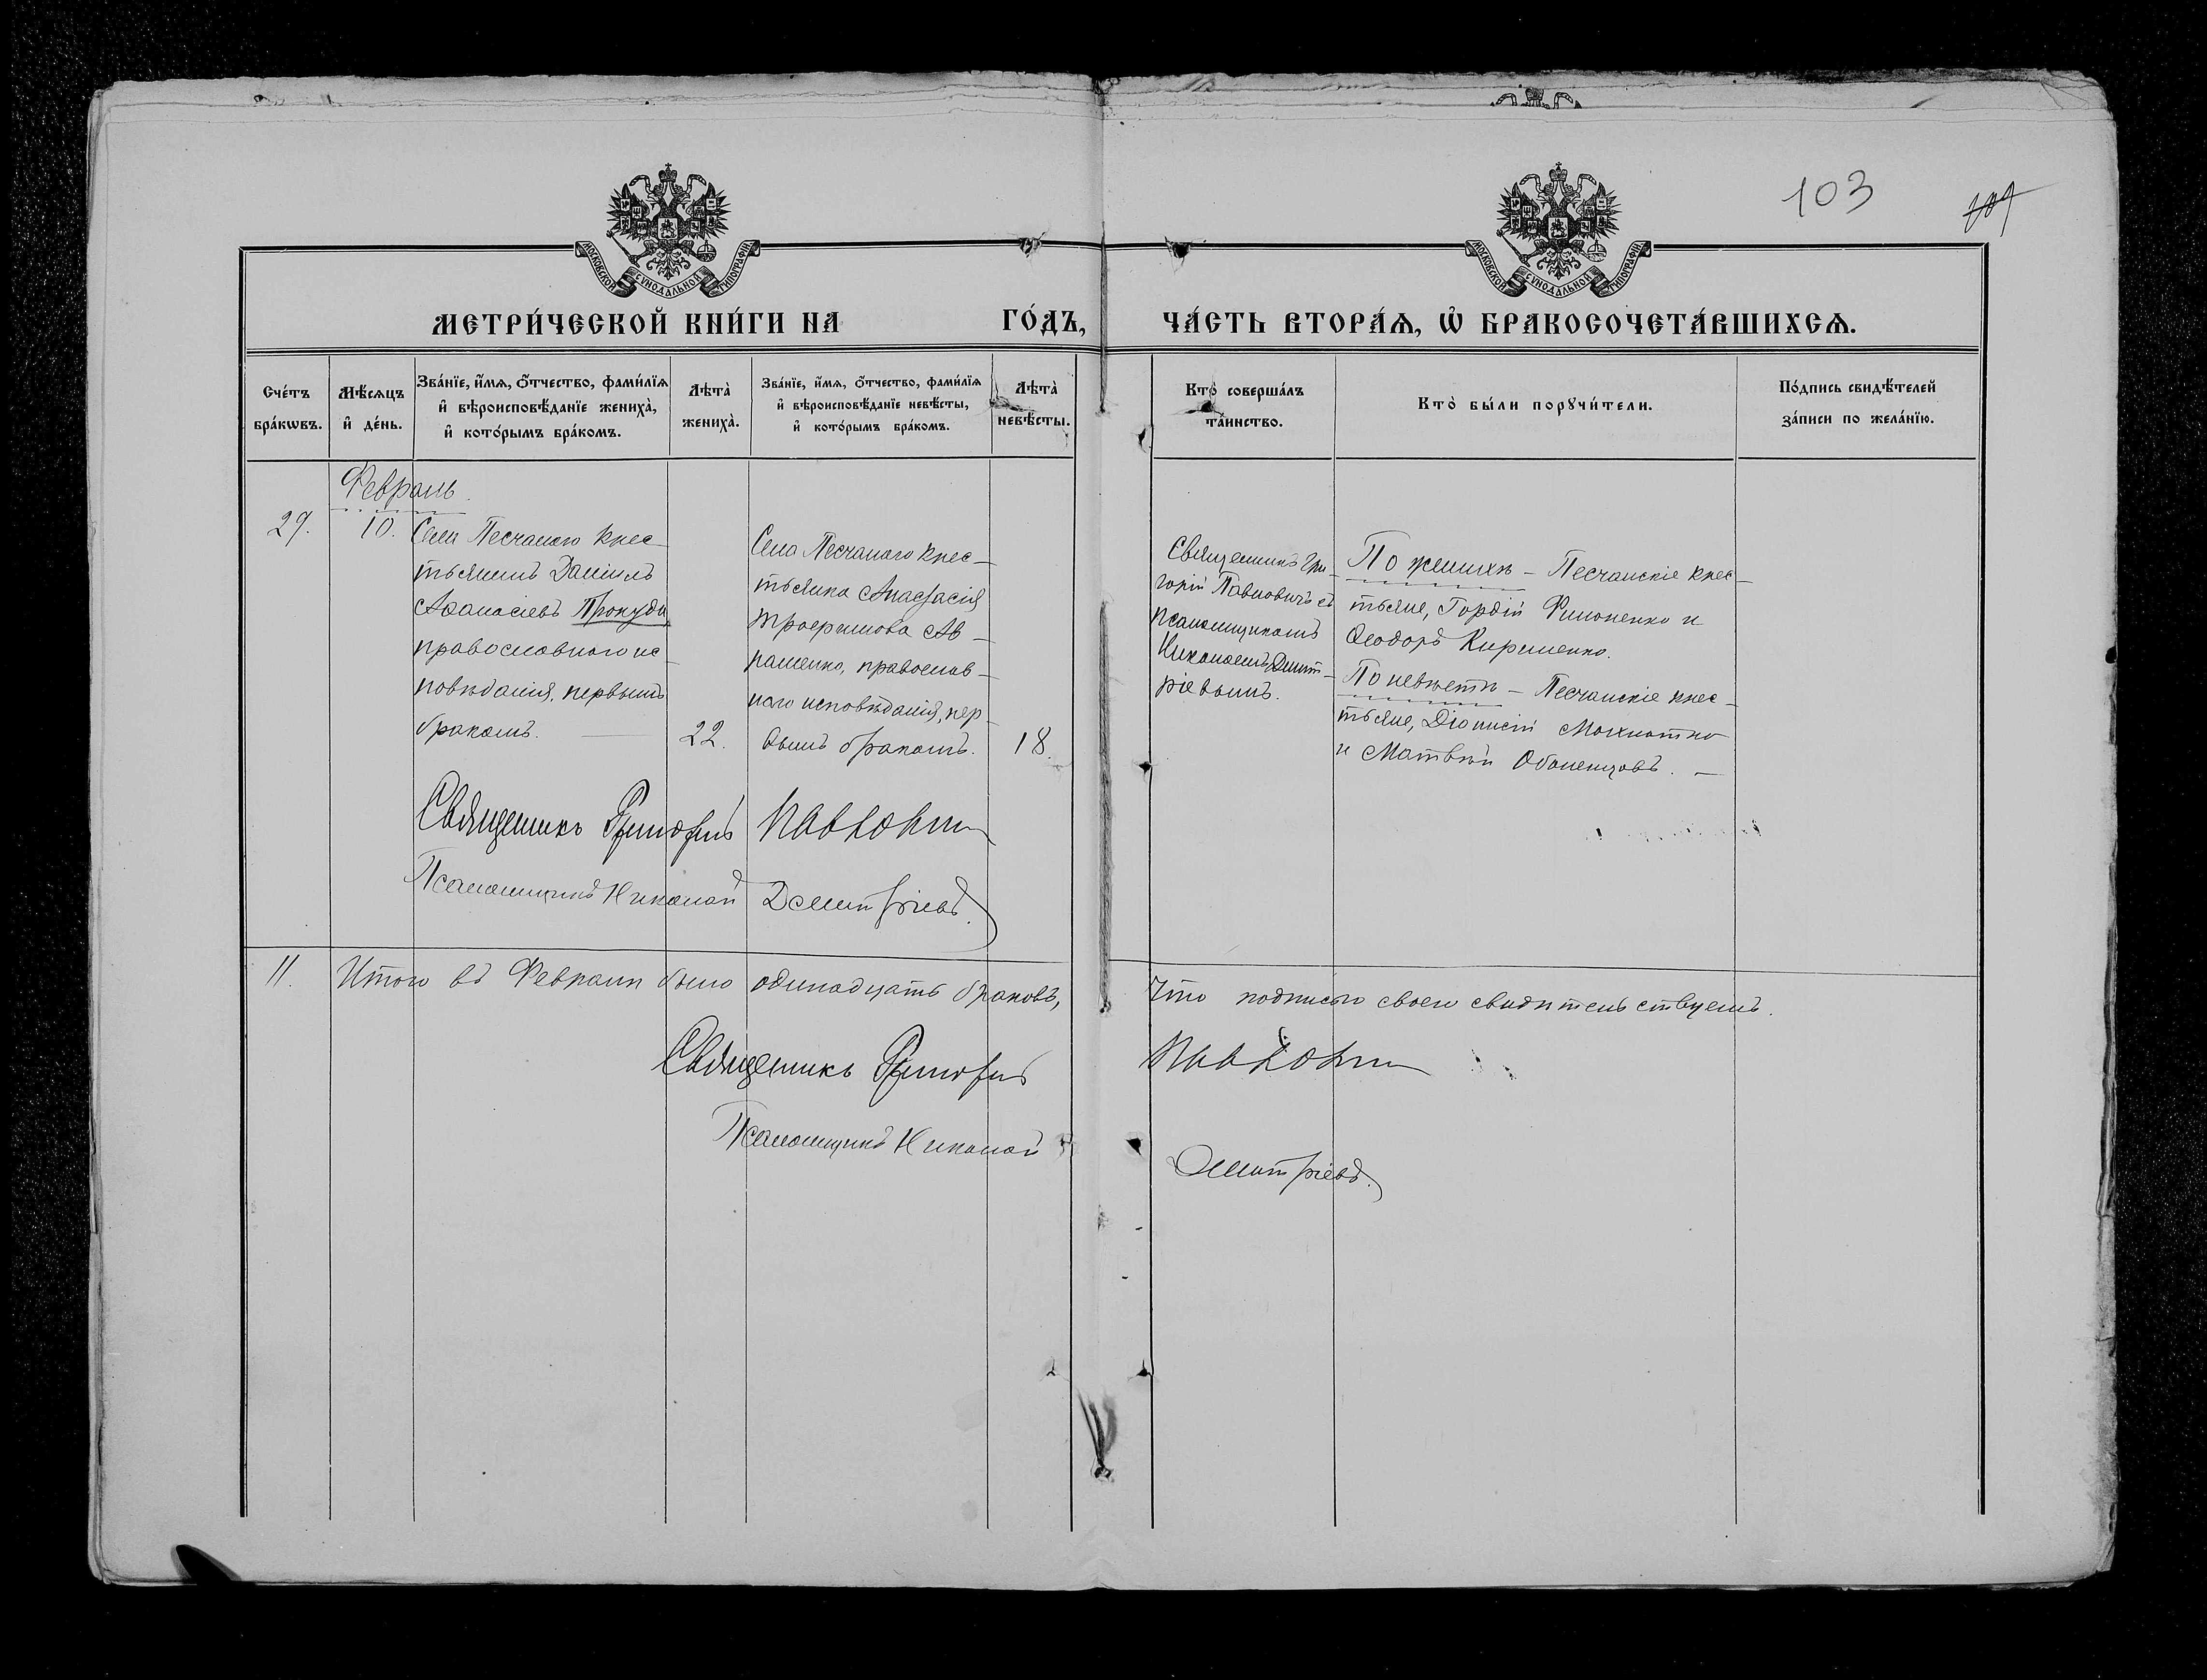 103
МОСКОВСКОЙ СѴНОДАЛЬНОЙ ТИПОГРАФІИ
МОСКОВСКОЙ СѴНОДАЛЬНОЙ ТИПОГРАФІИ
МЕТРИ́ЧЕСКОЙ КНИ́ГИ НА ГО́ДЪ,
ЧА́СТЬ ВТОРА́Ѧ, Ѽ БРАКОСОЧЕТА́ВШИХСѦ.
Сче́тъ бра́кѡвъ.
Мѣ́сѧцъ и҆ де́нь.
Зва́нїе, и҆́мѧ, ѻ҆́тчество, фами́лїѧ
и҆ вѣроисповѣ́данїе жениха̀,
и҆ кото́рымъ бра́комъ.
Лѣта̀ жениха̀.
Зва́нїе, и҆́мѧ, ѻ҆́тчество, фами́лїѧ
и҆ вѣроисповѣ́данїе невѣ́сты,
и҆ кото́рымъ бра́комъ.
Лѣта̀ невѣ́сты.
Кто̀ соверша́лъ
та́инство.
Кто̀ бы́ли порꙋчи́тели.
По́дпись свидѣ́телей
за́писи по жела́нїю.
Февраль.
29. 10.
Села Песчаного крес-
тьянинъ Даніилъ
Аѳанасіевъ Прокуда,
православнаго ис-
повѣданія, первымъ
бракомъ. 22.
Села Песчаного крес-
тьянка Анастасія
Трофимова Ав-
раменко, православ-
наго исповѣданія, пер-
вымъ бракомъ. 18.
Священникъ Гри-
горій Павловичъ съ
псаломщикомъ
Николаемъ Димит-
ріевымъ.
По женихѣ - Песчанскіе крес-
тьяне, Гордій Филоненко и
Ѳеодоръ Кириленко.
По невѣстѣ - Песчанскіе крес-
тьяне, Діонисій Мохнатко
и Матвѣй Обаленцовъ. -
Священникъ Григорій Павловичъ
Псаломщикъ Николай Димитріевъ.
11. Итого въ Февралѣ было одинадцать браковъ, что подписью своею свидѣтельствуемъ.
Священникъ Григорій Павловичъ
Псаломщикъ Николай Димитріевъ.